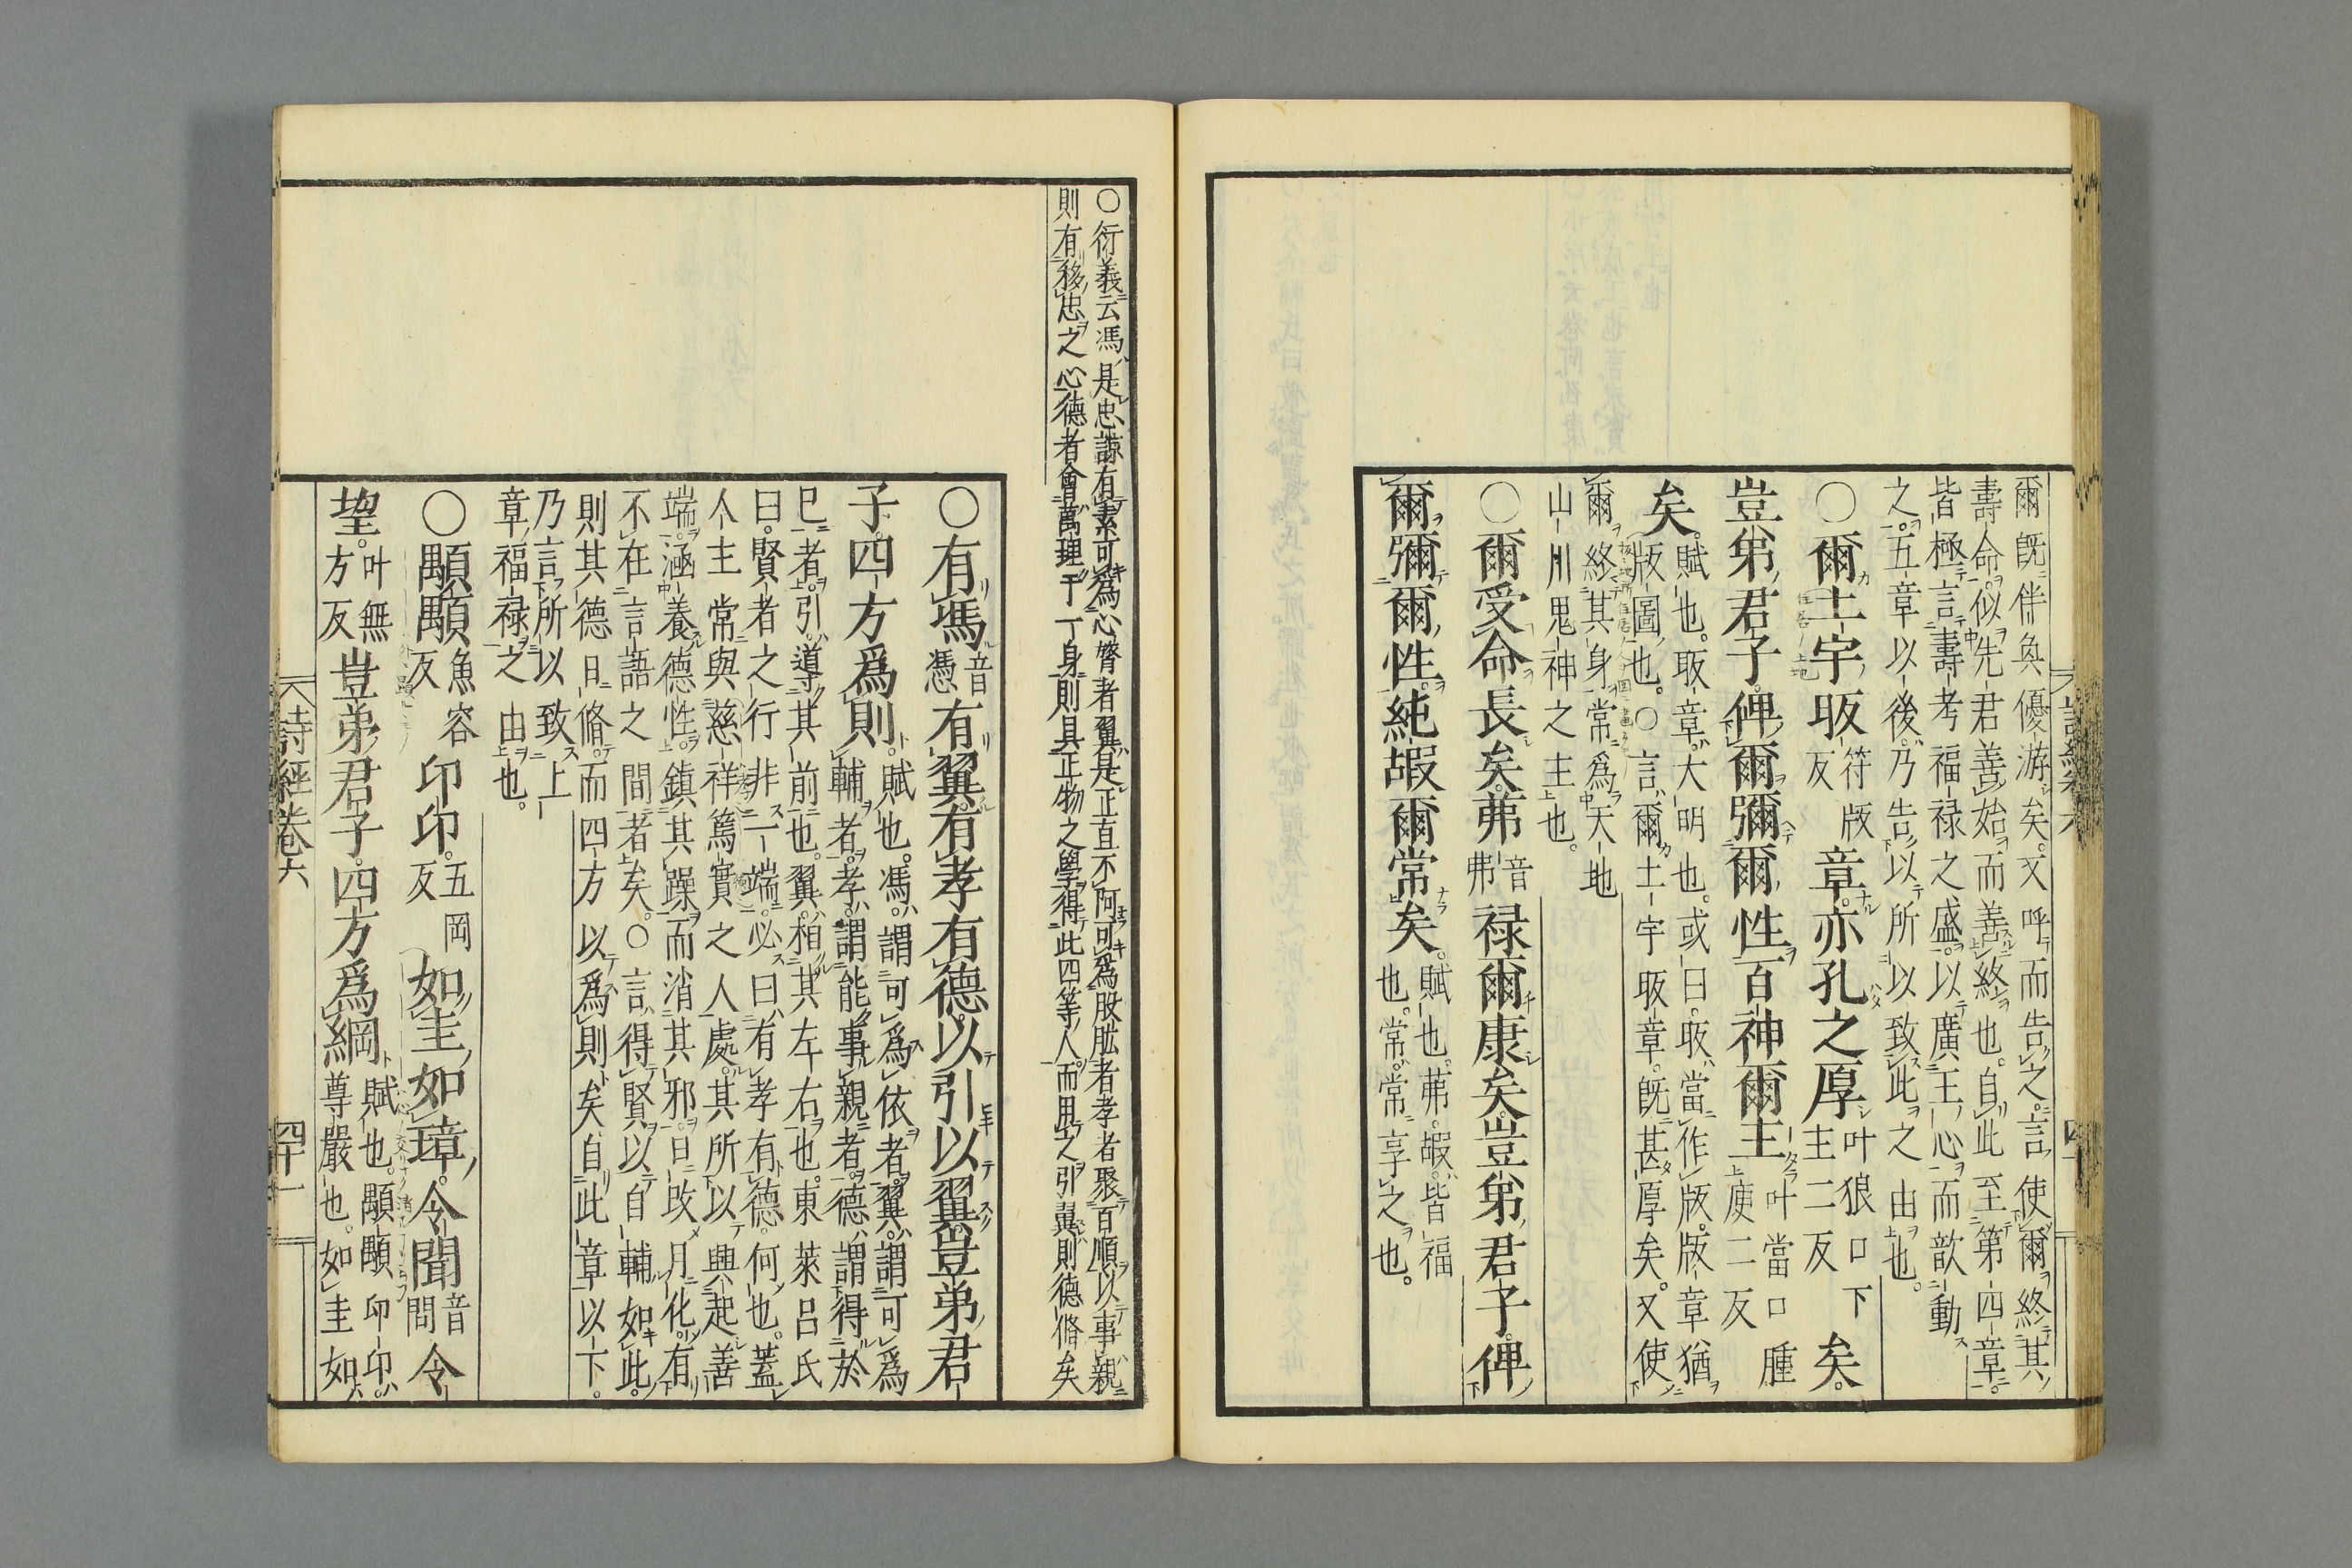 爾既伴奐優游矣。又呼而告之言。使爾終其
壽命。似先君善始而善終也。自此至第四章。
皆極言壽考福禄之盛。以廣王心而歆動
之。五章以後。乃告以所以致此之由也。
○爾土宇昄符版反章。亦孔之厚叶狼口下主二反矣。
豈弟君子。俾爾彌爾性。百神爾主叶當口腫庾二反
矣。賦也。昄章。大明也。或曰。昄當作版。版章猶
版圖也。○言爾土宇昄章。既甚厚矣。又使
爾終其身。常爲天地
山川鬼神之主也。
○爾受命長矣。茀音弗禄爾康矣。豈弟君子。俾
爾彌爾性。純嘏爾常矣。賦也。茀嘏。皆福也。常。常享之也。
詩經卷六
○衍義云馮是忠諒有素可爲心膂者翼是正直不阿可爲股肱者孝者聚百順以事親
則有移忠之心德者會萬理于一身則具正物之學得此四等人。而用之引翼則德脩矣
○有馮音憑有翼。有孝有德。以引以翼。豈弟君
子。四方爲則。賦也。馮。謂可爲依者。翼。謂可爲
輔者。孝。謂能事親者。德。謂得於
己者。引。導其前也。翼。相其左右也。東萊呂氏
曰。賢者之行非一端。必曰。有孝有德。何也。蓋
人主常與慈祥篤實之人處。其所以興起善
端。涵養德性。鎮其躁而消其邪。日改月化。有
不在言語之間者矣。○言得賢以自輔如此。
則其德日脩。而四方以爲則矣。自此章以下。
乃言所以致上
章福禄之由也。
○顒顒魚容反卬卬。五岡反如圭如璋。令聞音問令
望。叶無方反豈弟君子。四方爲綱。賦也。顒顒卬卬。尊嚴也。如圭如
詩經卷六
四十一